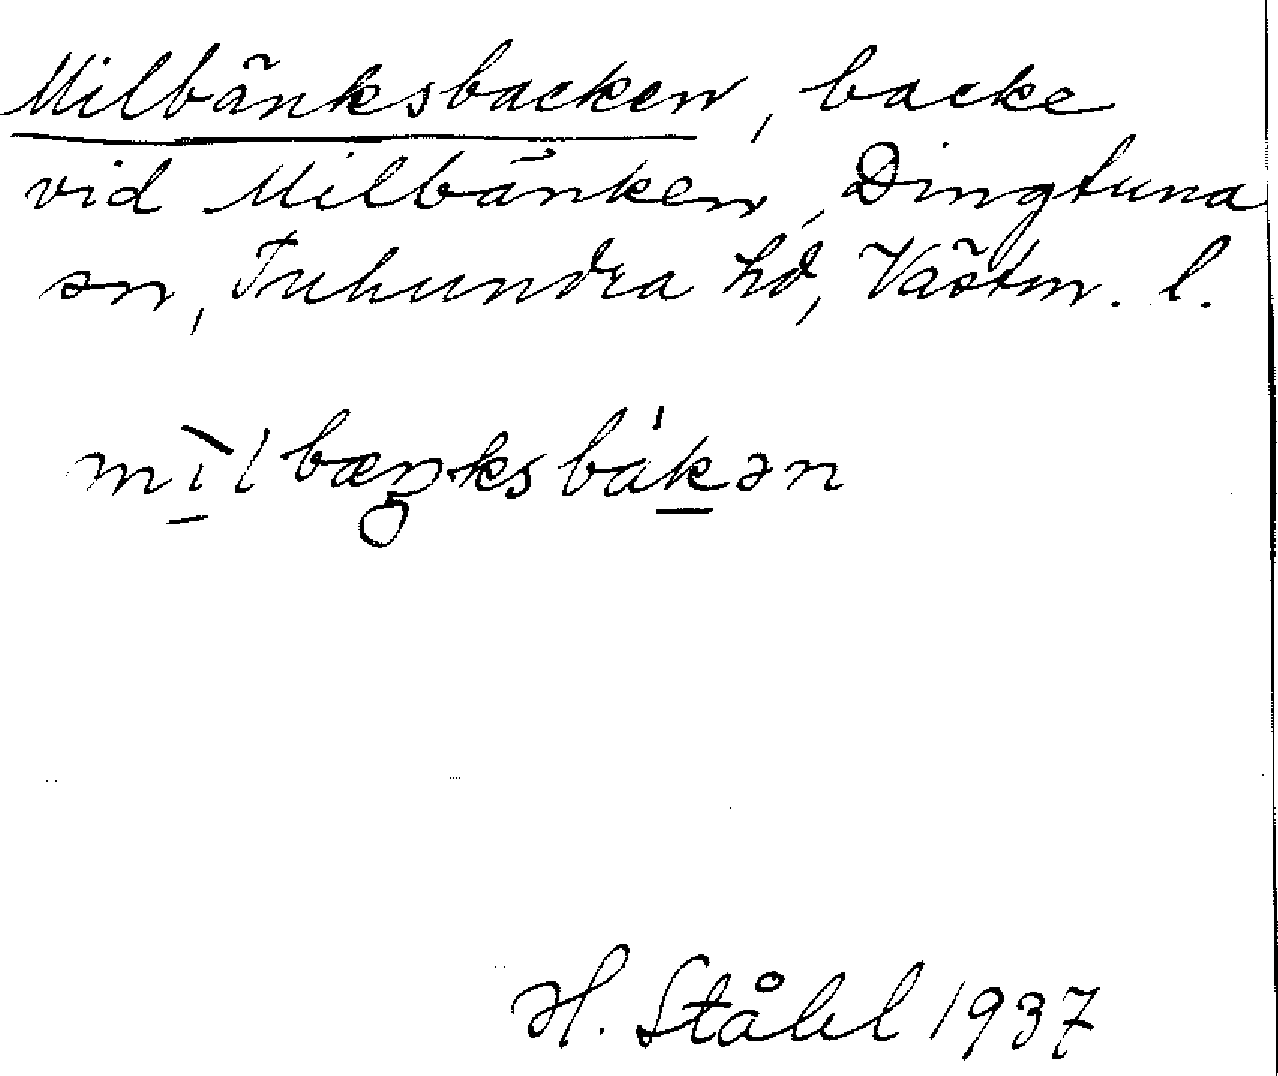 Milbänksbacken, backe
vid Milbänken, Dingtuna
sn, Tuhundra hd, Västm. l.
mı̠̀lbæŋksbák̠ən
H. Ståhl 1937